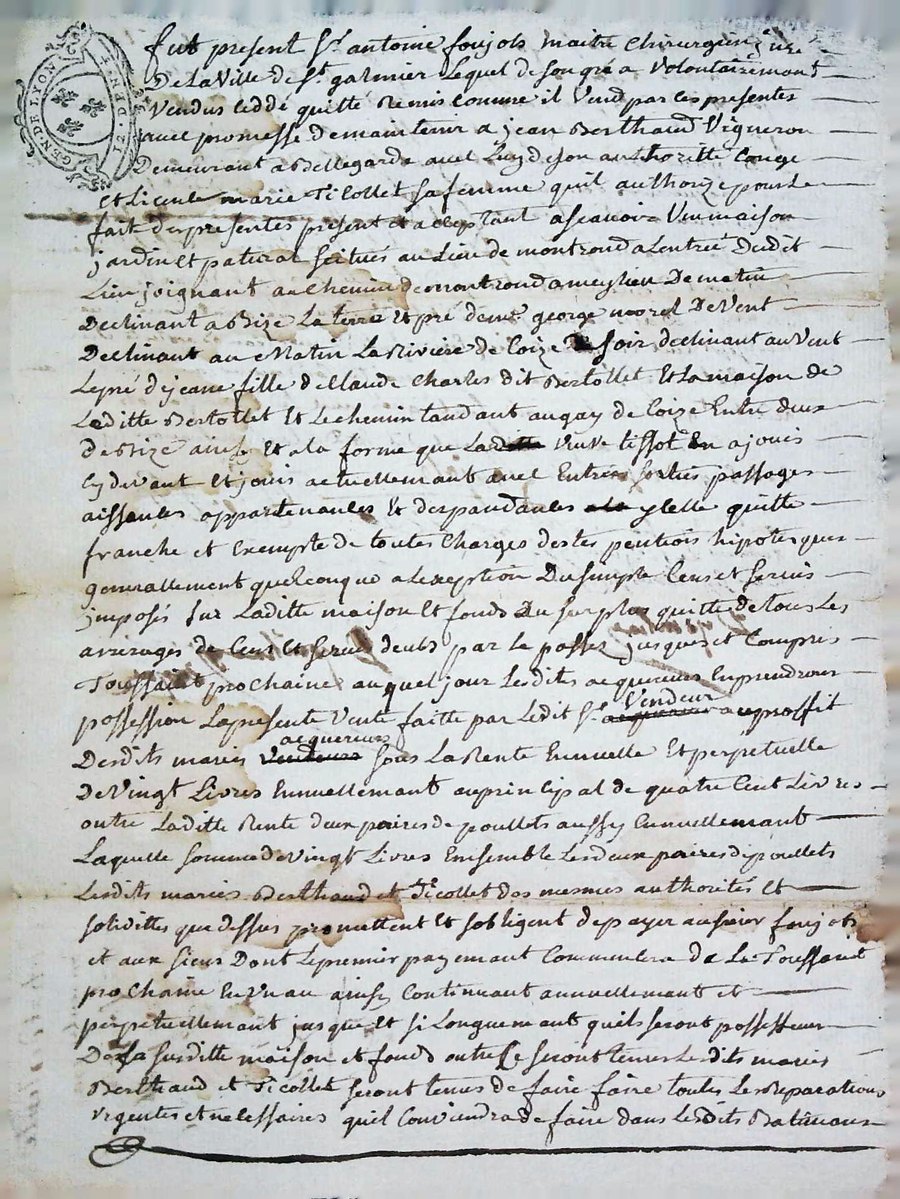 GEN. DE LYON
12. DEN. ET
fut present Sr. antoine foujols maitre Chirurgien juré
De La Ville de St. galmier Lequel de son gré a Volontairemant
Vendus ceddé quitté Remis comme il Vend par ces presentes
avec promesse de maintenir a jean Berthaud Vigneron
Demeurant a Bellegarde avec Luy de son authoritté Conge
et Licence marie Ticollet sa femme quil authorize pour Le
fait des presentes present et acceptant ascavoir Une maison
jardin et patural scitués au Lieu de montrond a Lentreé Dudit
Lieu joignant au Chemin de montrond a meylieu De matin
Declinant a Bize La terre et pré de me george morel De Vent
Declinant au Matin La Riviere de Coize De soir declinant au Vent
Le pré de jeane fille de Claude Charles dit Bertollet Et La maison de
Laditte Bertollet Et Le chemin tandant au gay de Coize Entre deux
de Bize ainsy Et a la forme que Laditte Veuve tissot En a jouis
Cy devant Et jouis actuellemant avec Entreés sorties passages
aissances appartenances Et despandances a la ycelle quitte
franche et Exempte de toutes Charges destes pentions hipoteques
generallement quelconque a Lexeption Du simple Cens et servis
jmposés sur Laditte maison Et fonds Du surplus quitte de tous Les
arrerages de Cens Et servis deubs par Le passez jusques et Compris
Toussaint prochaine auquel jour Lesdits acquereurs En prendront
possession La presente Vente faitte par Ledit Sr. acquereur Vendeur au proffit
Desdits mariés Vendeurs acquereurs sous La Rente Ennuelle Et perpetuelle
De Vingt Livres Ennuellemant au principal de quatre Cent Livres
outre Laditte Rente deux paires de poullets aussy Ennuellemant
Laquelle somme de Vingt Livres Ensemble Lesdeux paires de poullets
Lesdits mariés Berthaud et Ticollet des mesmes authorités et
soliditté que dessus promettent Et sobligent de payer au sieur foujols
et aux siens Dont Le premier payemant Commencera de La Toussaint
prochaine En Un an ainsy Continuant annuellemant et
perpetuellemant jusque Et si Longuemant quils seront possesseur
De La susditte maison et fond outre Ce seront tenus Lesdits mariés
Berthaud et Ticollet seront tenus de faire faire toutes Les Reparations
Urgentes et necessaires quil Conviendra de faire dans Lesdits Batimans